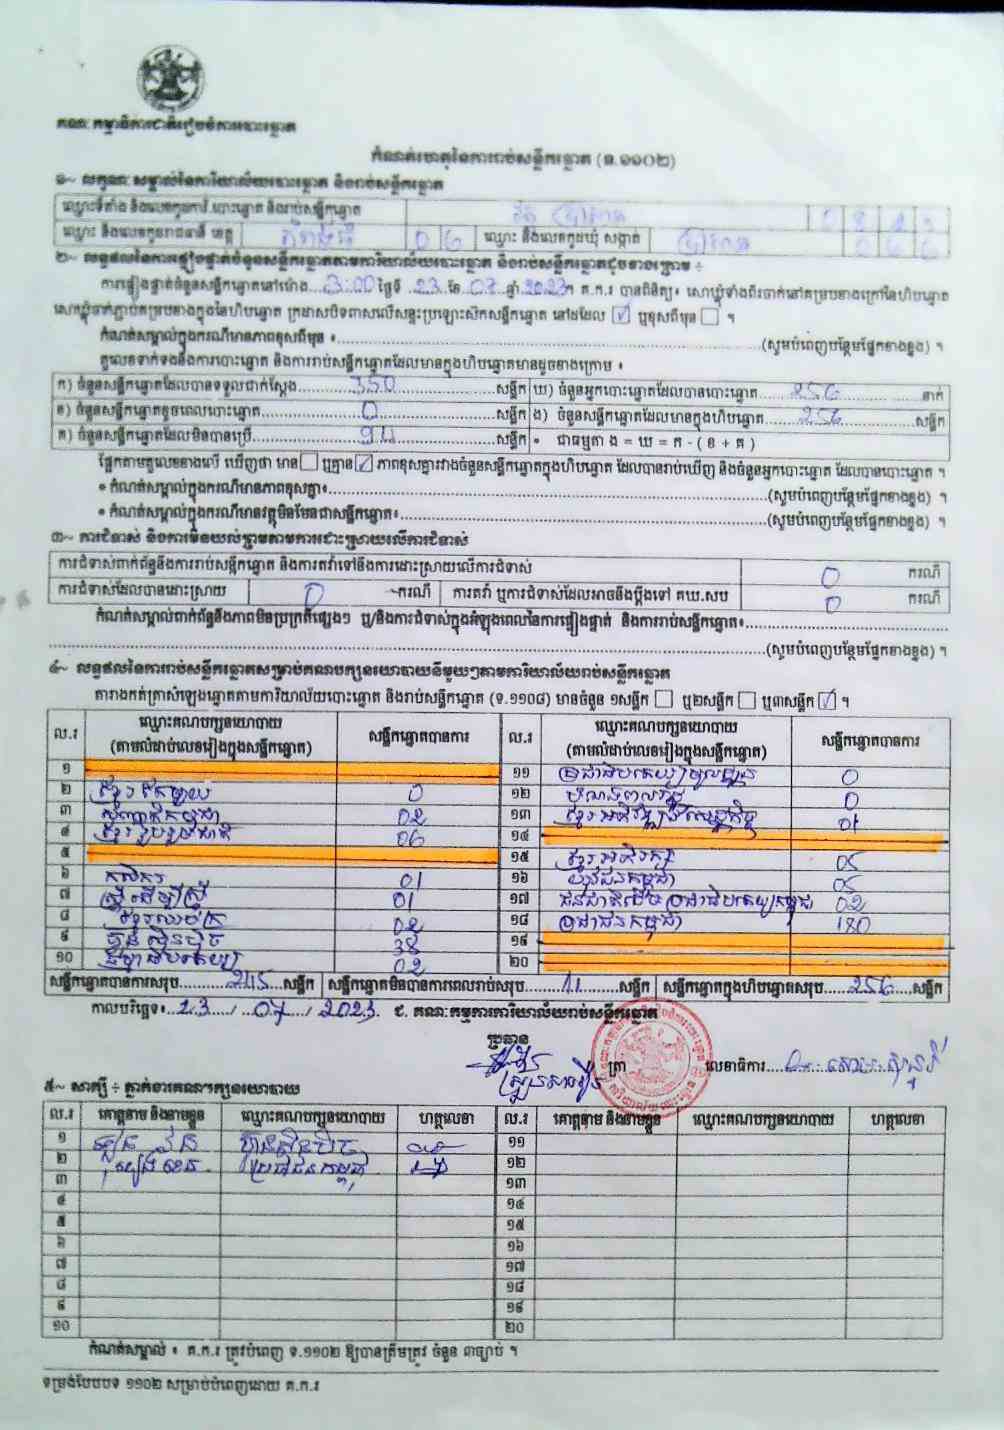 គណៈកម្មាធិការជាតិរៀបចំការបោះឆ្នោត
កំណត់ហេតុនៃការរាប់សន្លឹកឆ្នោត (ទ.១១០២)
១~ លក្ខណៈសម្គាល់នៃការិយាល័យបោះឆ្នោត និងរាប់សន្លឹកឆ្នោត
ឈ្មោះទីតាំង និងលេខកូដការិ.បោះឆ្នោត និងរាប់សន្លឹកឆ្នោត
ឈ្មោះ និងលេខកូដរាជធានី ខេត្ត 0 6 ឈ្មោះ និងលេខកូដឃុំ សង្កាត់
២~ លទ្ធផលនៃការផ្ទៀងផ្ទាត់ចំនួនសន្លឹកឆ្នោតតាមការិយាល័យបោះឆ្នោត និងរាប់សន្លឹកឆ្នោតដូចខាងក្រោម ÷
ការផ្ទៀងផ្ទាត់ចំនួនសន្លឹកឆ្នោតនៅម៉ោង 3:00 ថ្ងៃទី 23 ខែ 07 ឆ្នាំ 2023 គ.ក.រ បានពិនិត្យ៖ សោឃ្លុំទាំងពីរចាក់នៅគម្របខាងក្រៅនៃហិបឆ្នោត
សោឃ្លុំចាក់ភ្ជាប់គម្របខាងក្នុងនៃហិបឆ្នោត ក្រដាសបិទពាសលើសន្ទះប្រឡោះសិកសន្លឹកឆ្នោត នៅដដែល ☑ ឬខុសពីមុន ☐ ។
កំណត់សម្គាល់ក្នុងករណីមានភាពខុសពីមុន ៖ (សូមបំពេញបន្ថែមផ្នែកខាងខ្នង) ។
តួលេខទាក់ទងនឹងការបោះឆ្នោត និងការរាប់សន្លឹកឆ្នោតដែលមានក្នុងហិបឆ្នោតមានដូចខាងក្រោម ៖
ក) ចំនួនសន្លឹកឆ្នោតដែលបានទទួលជាក់ស្តែង 350 សន្លឹក ឃ) ចំនួនអ្នកបោះឆ្នោតដែលបានបោះឆ្នោត 256 នាក់
ខ) ចំនួនសន្លឹកឆ្នោតខូចពេលបោះឆ្នោត 0 សន្លឹក ង) ចំនួនសន្លឹកឆ្នោតដែលមានក្នុងហិបឆ្នោត 256 សន្លឹក
គ) ចំនួនសន្លឹកឆ្នោតដែលមិនបានប្រើ 94 សន្លឹក ៖ ជាធម្មតា ង = ឃ = ក - ( ខ + គ )
ផ្អែកតាមតួលេខខាងលើ ឃើញថា មាន ☐ ឬគ្មាន ☑ ភាពខុសគ្នារវាងចំនួនសន្លឹកឆ្នោតក្នុងហិបឆ្នោត ដែលបានរាប់ឃើញ និងចំនួនអ្នកបោះឆ្នោត ដែលបានបោះឆ្នោត ។
* កំណត់សម្គាល់ក្នុងករណីមានភាពខុសគ្នា៖ (សូមបំពេញបន្ថែមផ្នែកខាងខ្នង) ។
* កំណត់សម្គាល់ក្នុងករណីមានវត្ថុមិនមែនជាសន្លឹកឆ្នោត៖ (សូមបំពេញបន្ថែមផ្នែកខាងខ្នង) ។
៣~ ការជំទាស់ និងការមិនយល់ព្រមតាមការដោះស្រាយលើការជំទាស់
ការជំទាស់ពាក់ព័ន្ធនឹងការរាប់សន្លឹកឆ្នោត និងការតវ៉ាទៅនឹងការដោះស្រាយលើការជំទាស់ 0 ករណី
ការជំទាស់ដែលបានដោះស្រាយ 0 ករណី ការតវ៉ា ឬការជំទាស់ដែលអាចនឹងប្តឹងទៅ គឃ.សប 0 ករណី
កំណត់សម្គាល់ពាក់ព័ន្ធនឹងភាពមិនប្រក្រតីផ្សេងៗ ឬ/និងការជំទាស់ក្នុងអំឡុងពេលនៃការផ្ទៀងផ្ទាត់ និងការរាប់សន្លឹកឆ្នោត៖
(សូមបំពេញបន្ថែមផ្នែកខាងខ្នង) ។
៤~ លទ្ធផលនៃការរាប់សន្លឹកឆ្នោតសម្រាប់គណបក្សនយោបាយនីមួយៗតាមការិយាល័យរាប់សន្លឹកឆ្នោត
តារាងកត់ត្រាសំឡេងឆ្នោតតាមការិយាល័យបោះឆ្នោត និងរាប់សន្លឹកឆ្នោត (ទ.១១០៨) មានចំនួន ១សន្លឹក ☐ ឬ២សន្លឹក ☐ ឬ៣សន្លឹក ☑ ។
ល.រ ឈ្មោះគណបក្សនយោបាយ (តាមលំដាប់លេខរៀងក្នុងសន្លឹកឆ្នោត) សន្លឹកឆ្នោតបានការ ល.រ ឈ្មោះគណបក្សនយោបាយ (តាមលំដាប់លេខរៀងក្នុងសន្លឹកឆ្នោត) សន្លឹកឆ្នោតបានការ
១ ១១ ប្រជាធិបតេយ្យមូលដ្ឋាន 0
២ ខ្មែរឯកភាព 0 ១២ 0
៣ 02 ១៣ ខ្មែរអភិវឌ្ឍន៍សេដ្ឋកិច្ច 01
៤ ខ្មែររួបរួមជាតិ 06 ១៤
៥ ១៥ ខ្មែរអភិរក្ស 05
៦ កសិករ 01 ១៦ យុវជនកម្ពុជា 05
៧ ស្ត្រីដើម្បីស្ត្រី 01 ១៧ ជនជាតិដើមប្រជាធិបតេយ្យកម្ពុជា 02
៨ ខ្មែរឈប់ក្រ 02 ១៨ ប្រជាជនកម្ពុជា 180
៩ ហ៊្វុនស៊ិនប៉ិច 38 ១៩
១០ 02 ២០
សន្លឹកឆ្នោតបានការសរុប 245 សន្លឹក សន្លឹកឆ្នោតមិនបានការពេលរាប់សរុប 11 សន្លឹក សន្លឹកឆ្នោតក្នុងហិបឆ្នោតសរុប 256 សន្លឹក
កាលបរិច្ឆេទ៖ 23 / 07 / 2023 ជ. គណៈកម្មការការិយាល័យរាប់សន្លឹកឆ្នោត
ប្រធាន
ត្រា លេខាធិការ
៥~ សាក្សី ÷ ភ្នាក់ងារគណបក្សនយោបាយ
ល.រ គោត្តនាម និងនាមខ្លួន ឈ្មោះគណបក្សនយោបាយ ហត្ថលេខា ល.រ គោត្តនាម និងនាមខ្លួន ឈ្មោះគណបក្សនយោបាយ ហត្ថលេខា
១ ហ៊្វុនស៊ិនប៉ិច ១១
២ ប្រជាជនកម្ពុជា ១២
៣ ១៣
៤ ១៤
៥ ១៥
៦ ១៦
៧ ១៧
៨ ១៨
៩ ១៩
១០ ២០
កំណត់សម្គាល់ ៖ គ.ក.រ ត្រូវបំពេញ ទ.១១០២ ឱ្យបានត្រឹមត្រូវ ចំនួន ៣ច្បាប់ ។
ទម្រង់បែបបទ ១១០២ សម្រាប់បំពេញដោយ គ.ក.រ